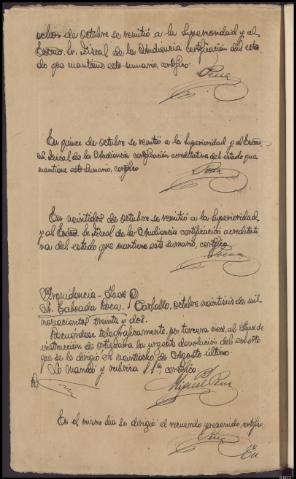 ocho de octubre se remitió a la Superioridad y al
Excmo. Sr. Fiscal de la Audiencia certificación del esta
do que mantiene este sumario, certifico
En quince de octubre se remitió a la Superioridad y al Excmo.
Sr. Fiscal de la Audiencia certificación acreditativa del estado que
mantiene este sumario, certifico
En veintidos de octubre se remitió a la Superioridad
y al Excmo. Sr. Fiscal de la Audiencia certificación acreditati
va del estado que mantiene este sumario, certifico
Providencia - Juez
Sr. Carballo, octubre veintiseis de mil
novecientos treinta y dos.
Recuérdese telegráficamente, por tercera vez, al Juez de
instrucción de la urgente devolución del exhorto
que se le dirigió en veintiocho de Agosto último.
Lo mandó y rubrica S Sª certifico
En el mismo dia se dirigió el recuerdo prevenido, certifico